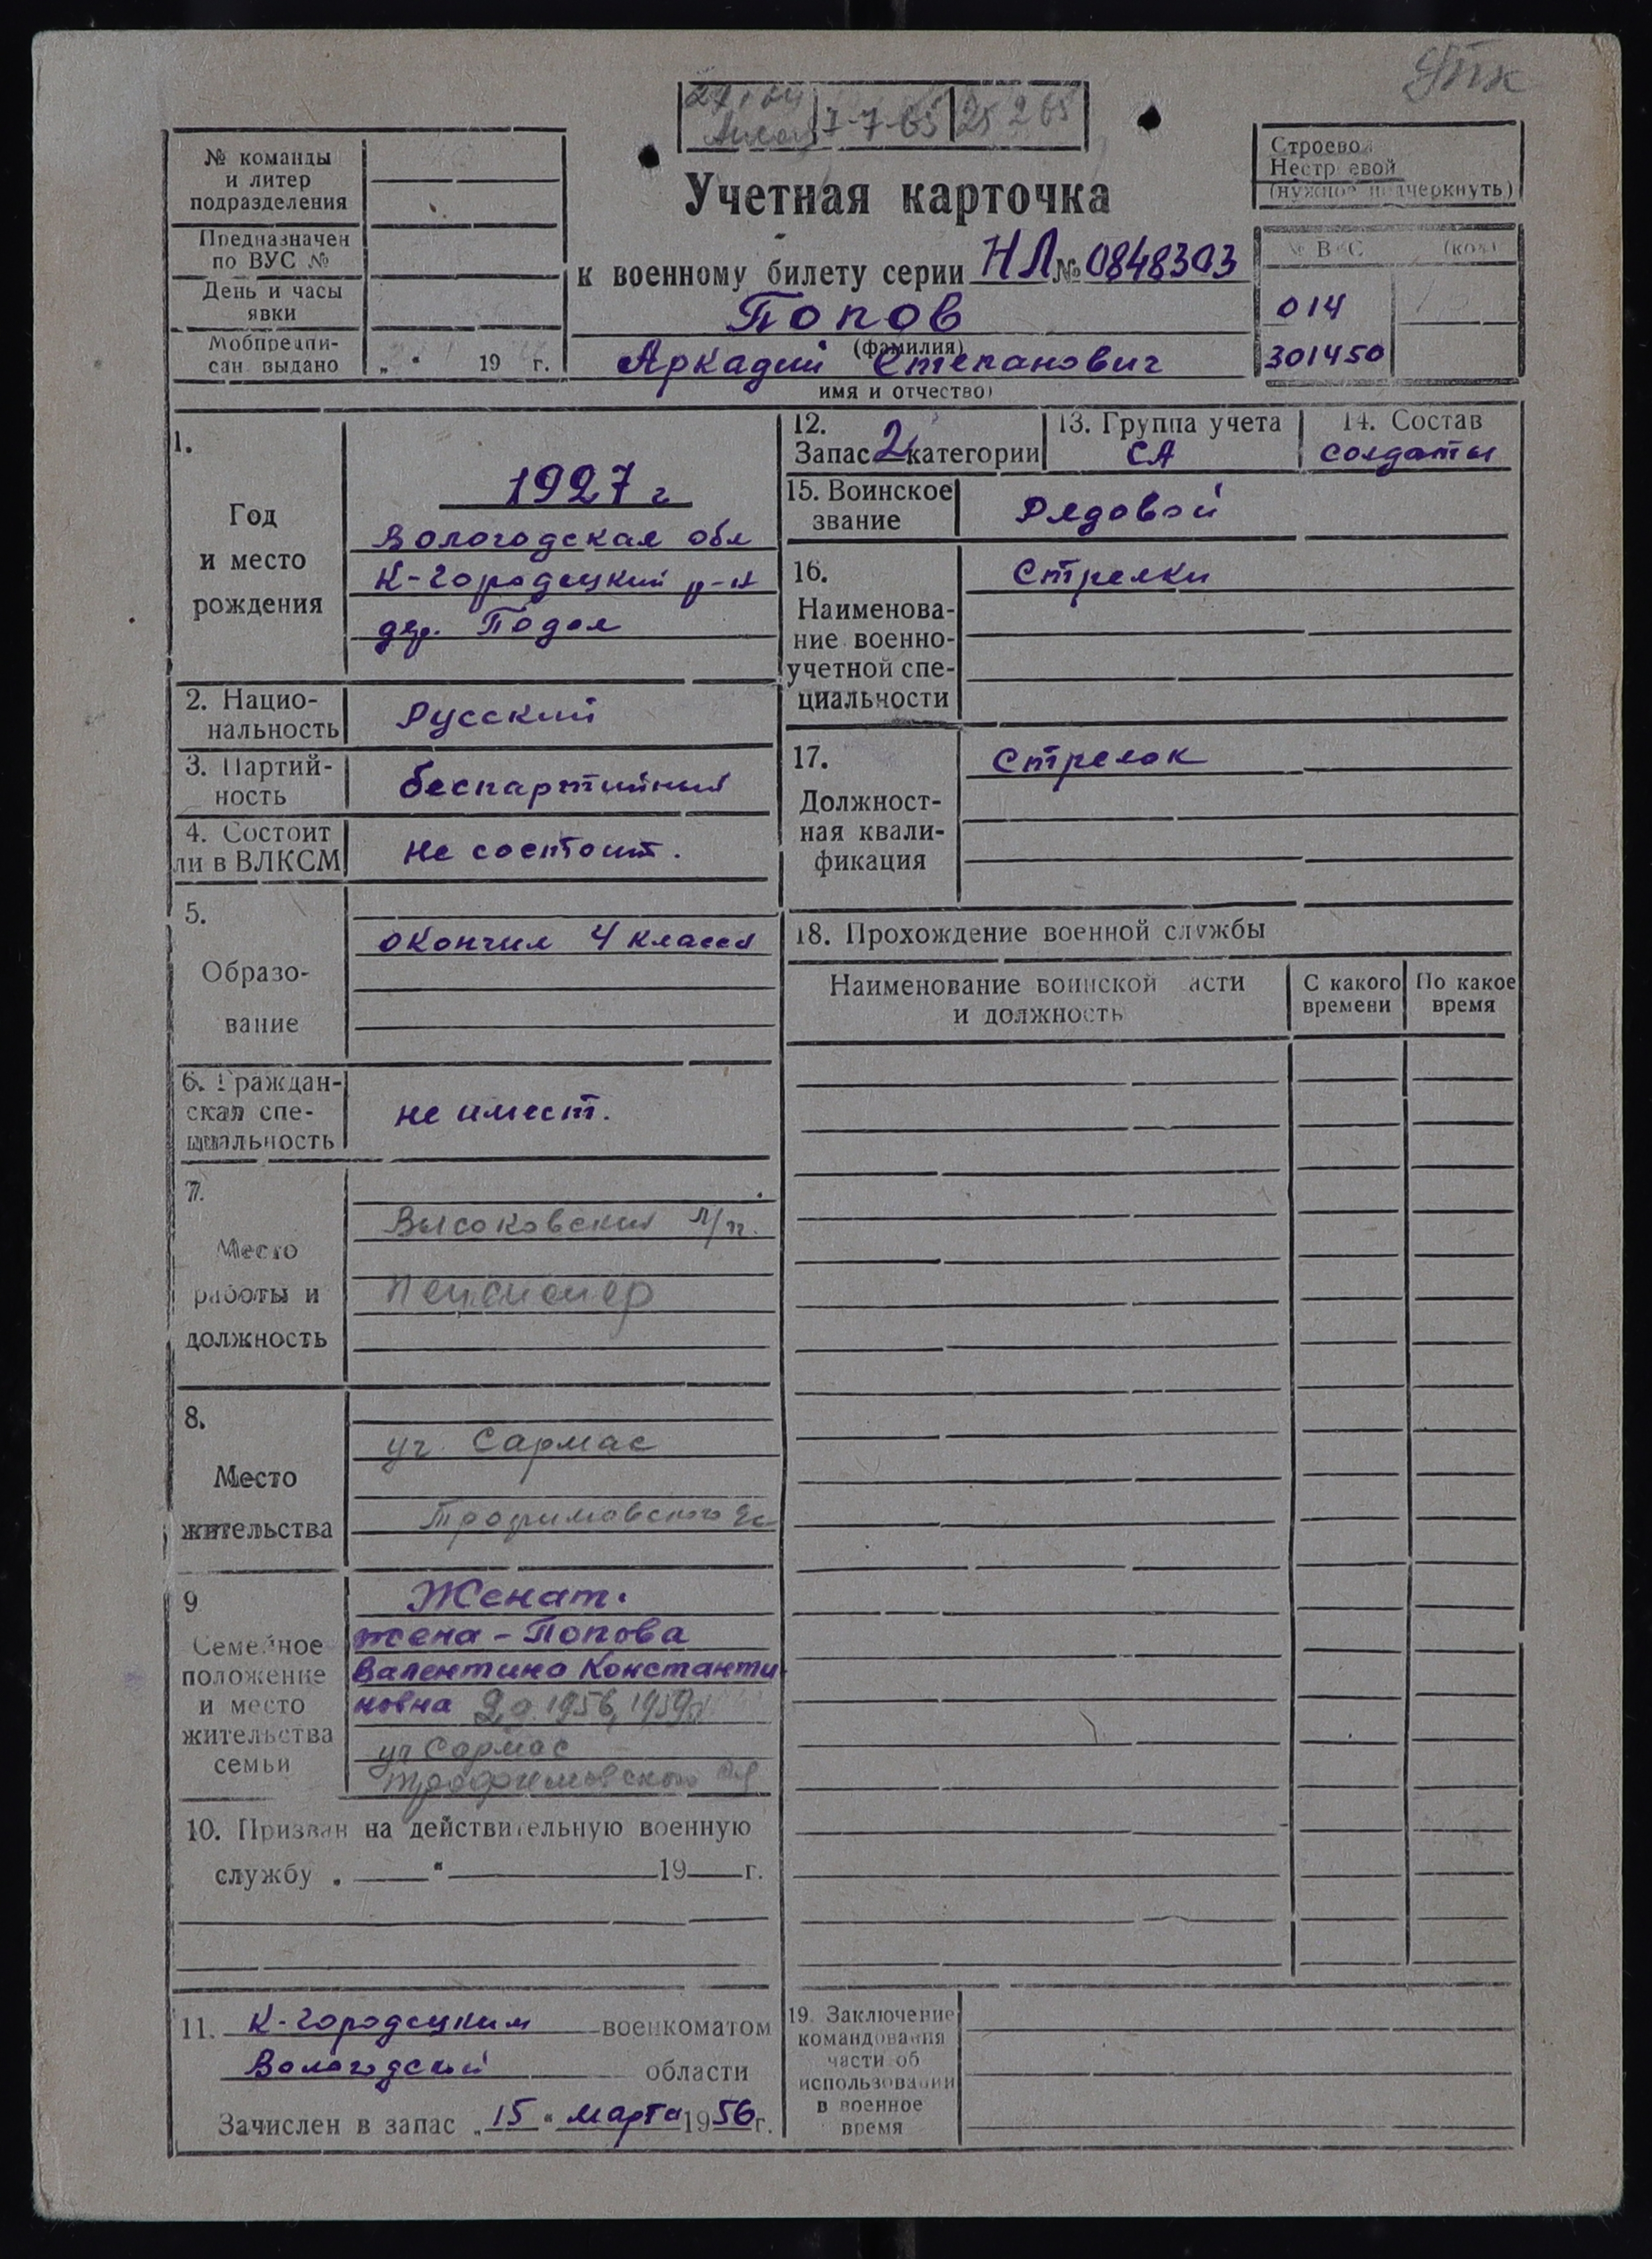 7-7-65 25 2 65
№ команды
и литер
подразделения
Предназначен
по ВУС №
День и часы
явки
Мобпредпи-
сан. выдано „ “ 19 г.
Учетная карточка
к военному билету серии НЛ № 0848303
Попов
(фамилия)
Аркадий Степанович
имя и отчество)
Строевой
Нестроевой
(нужное подчеркнуть)
№ ВУС (код)
014
301450
1.
Год
и место
рождения
1927 г
Вологодская обл
К-Городецкий р-н
дер. Подол
2. Нацио-
нальность
Русский
3. Партий-
ность
беспартийный
4. Состоит
ли в ВЛКСМ
не состоит.
5.
Образо-
вание
окончил 4 класса
6. Граждан-
ская спе-
циальность
не имеет.
7.
Место
работы и
должность
Высоковский л/п.
Пенсионер
8.
Место
жительства
уч. Сармас
Трофимовского
9
Семейное
положение
и место
жительства
семьи
Женат.
жена - Попова
Валентина Константи
новна 2 д. 1956, 1959
уч Сармас
Трофимовского
10. Призван на действительную военную
службу „ “ 19 г.
11. К-Городецким военкоматом
Вологодской области
Зачислен в запас „15“ марта 1956 г.
12.
Запас 2 категории
13. Группа учета
СА
14. Состав
солдаты
15. Воинское
звание
Рядовой
16.
Наименова-
ние военно-
учетной спе-
циальности
Стрелки
17.
Должност-
ная квали-
фикация
Стрелок
18. Прохождение военной службы
Наименование воинской части
и должность
С какого
времени
По какое
время
19. Заключение
командования
части об
использовании
в военное
время